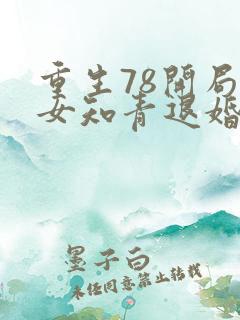 重生78开局
女知青退婚
墨子白
未经同意禁止转载